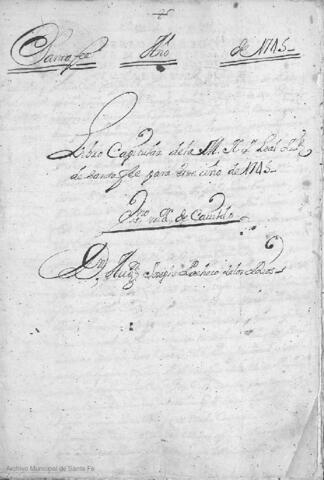 Santa fee Año de 1745
Libro Capitular de la M. N. y Leal
de Santa fee para este año de 1745
de Cavildo
Dn Joseph Pacheco de los
Archivo Municipal de Santa Fe